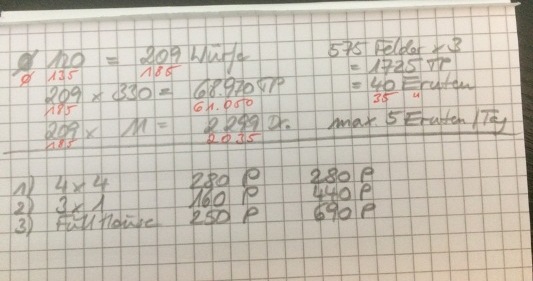 ø 120 = 209 Würfe
ø 135 185
209 x 330 = 68.970 TP
185 61.050
209 x 11 = 2.299 Dr.
185 2035
575 Felder x 3
= 1725 TP
= 40 Ernten
35 "
max 5 Ernten / Tag
1) 4 x 4 280 P 280 P
2) 3 x 1 160 P 440 P
3) Full House 250 P 690 P